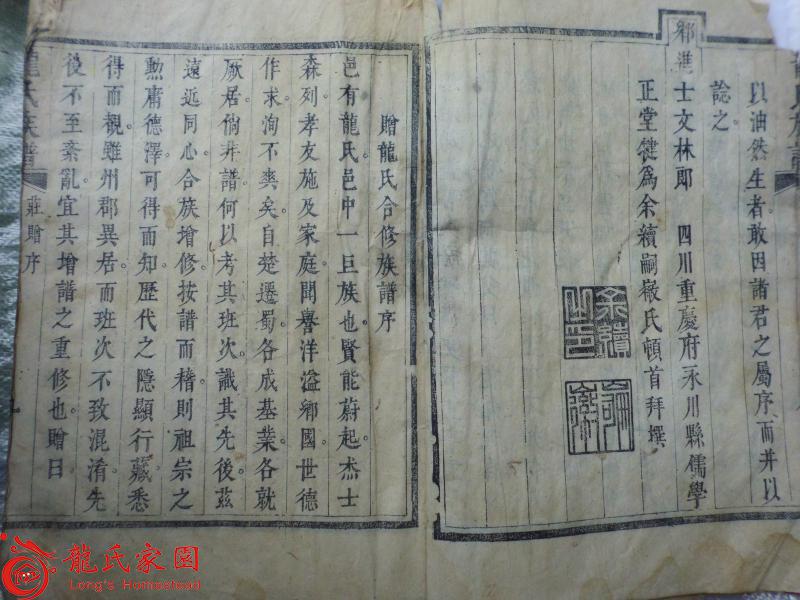 以油然生者敢因諸君之屬序而并以
諗之
鄉進士文林郎 四川重慶府永川縣儒學
正堂犍為余續嗣嶽氏頓首拜撰
余續
之印
贈龍氏合修族譜序
邑有龍氏邑中一巨族也賢能蔚起杰士
森列孝友施及家庭聞譽洋溢鄉國世德
作求洵不爽矣自楚遷蜀各成基業各就
厥居倘弗譜何以考其班次識其先後茲
遠近同心合族增修按譜而稽則祖宗之
勳庸德澤可得而知歷代之隱顯行藏悉
得而觀雖州郡異居而班次不致混淆先
後不至紊亂宜其增譜之重修也贈曰
龍氏族譜 莊贈序
龍氏家園
Long's Homestead